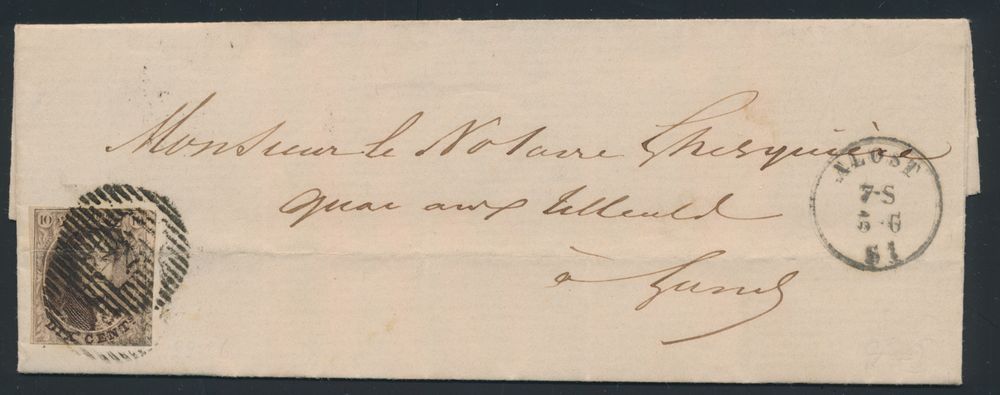 Monsieur le Notaire Ghesquière
quai aux Tilleuls
à Gand
ALOST
7-S
5-6
61
10
DIX CENTS